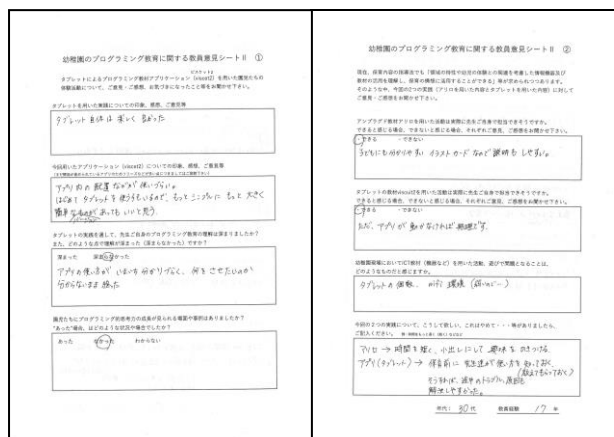 幼稚園のプログラミング教育に関する教員意見シートⅡ ①
タブレットによるプログラミング教材アプリケーション(viscuit2)を用いた園児たちの
体験活動について、ご意見・ご感想、お気づきになったこと等をお聞かせ下さい。
タブレットを用いた実践についての印象、感想、ご意見等
タブレット自体は楽しく 良かった
今回用いたアプリケーション(viscuit2)についての印象、感想、ご意見等
アプリ内の配置などが使いづらい。
はじめてタブレットを使う子もいるので、もっとシンプルに もっと大きく
簡単なものがあってもいいと思う。
タブレットの実践を通して、先生ご自身のプログラミング教育の理解は深まりましたか?
また、どのような点で理解が深まった(深まらなかった)ですか?
深まった 深まらなかった
アプリの使い方がいまいち分かりづらく、何をさせたいのか
分からないまま終った
園児たちにプログラミング的思考力の成長が見られる場面や傾向はありましたか?
"あった"場合、はどのような状況や場合でしたか?
あった なかった わからない
幼稚園のプログラミング教育に関する教員意見シートⅡ ②
アンプラグド教材アリロを用いた活動は実際に先生ご自身で担当できそうですか。
できると感じる場合、できないと感じる場合、それぞれご意見、ご感想をお聞かせ下さい。
・できる ・できない
子どもにも分かりやすい イラストカードなので説明もしやすい。
タブレットの教材viscuit2を用いた活動は実際に先生ご自身で担当できそうですか。
できると感じる場合、できないと感じる場合、それぞれご意見、ご感想をお聞かせ下さい。
・できる ・できない
ただ、アプリが動かなければ無理です。
幼稚園現場においてICT教材(機器など)を用いた活動、遊びで問題となることは、
どのようなものだと感じますか。
タブレットの個数、 環境
今回の2つの実践について、こうして欲しい、これはやめて・・・等がありましたら、
ご記入ください。
アリロ → 時間を短く、小出しにして 興味をひきつける
アプリ(タブレット) → 保育前に先生達が使い方を知っておく、
そうすれば、途中のトラブル、
解決しやすかった。
年代: 30代 教員経験 17 年